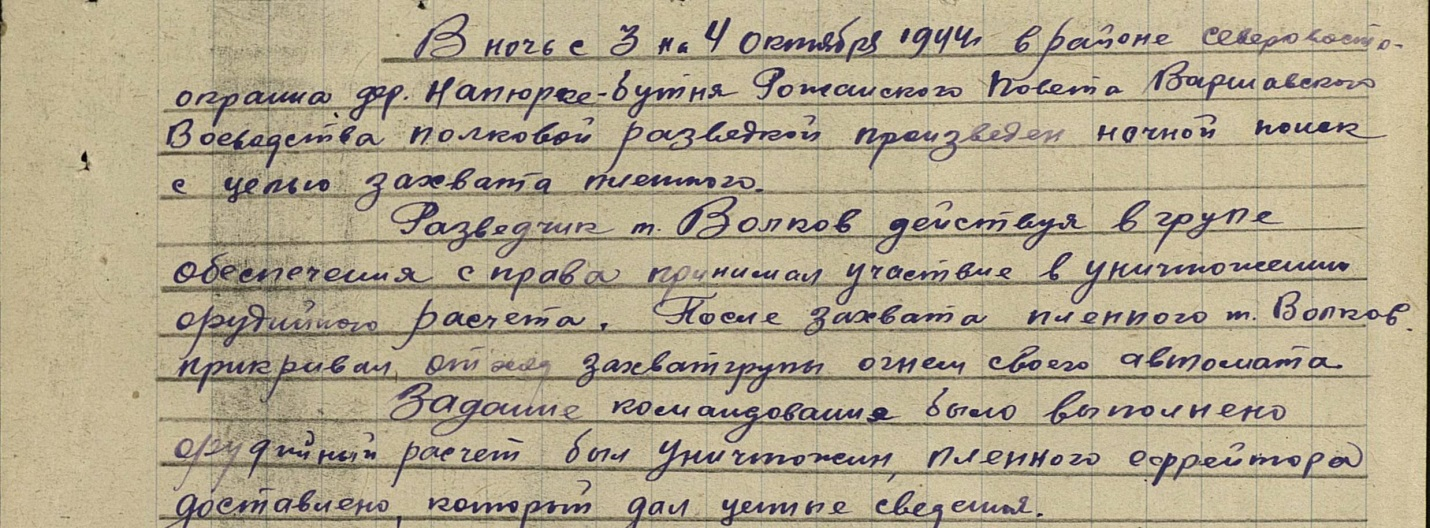 В ночь с 3 на 4 октября 1944 в районе северовосто-
окраина дер. Напюрке-Бутня Рожанского Повета Варшавского
Воеводства полковой разведкой произведен ночной поиск
с целью захвата пленного.
Разведчик т. Волков действуя в групе
обеспечения с права принимал участие в уничтожении
орудийного расчета. После захвата пленного т. Волков
прикривал отход захватгрупы огнем своего автомата
Задание командования было выполнено
орудийный расчет был уничтожен, пленного ефрейтора
доставлено, который дал ценные сведения.